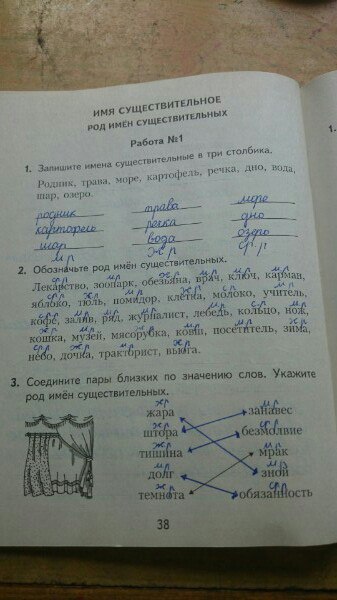 ИМЯ СУЩЕСТВИТЕЛЬНОЕ
РОД ИМЁН СУЩЕСТВИТЕЛЬНЫХ
Работа №1
1.
1. Запишите имена существительные в три столбика.
Родник, трава, море, картофель, речка, дно, вода,
шар, озеро.
родник трава море
картофель речка дно
шар вода озеро
м р ж р с р
2. Обозначьте род имён существительных.
Лекарство, зоопарк, обезьяна, врач, ключ, карман,
яблоко, тюль, помидор, клетка, молоко, учитель,
кофе, залив, ряд, журналист, лебедь, кольцо, нож,
кошка, музей, мясорубка, ковш, посетитель, зима,
небо, дочка, тракторист, вьюга.
3. Соедините пары близких по значению слов. Укажите
род имён существительных.
ж р м р
жара занавес
ж р ср р
штора безмолвие
ж р м р
тишина мрак
м р м р
долг зной
ж р ср р
темнота обязанность
38